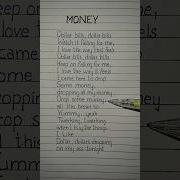 MONEY
Dollar bills, dolla bills
Watch it falling for me,
I love the way that feels
Dollar bills, dolla bills
Keep on falling for me,
I love the way it feels
I came here to drop
Some money,
dropping all my money
Drop some money,
all this bread so
Yummy, yeah
Twerking, twerking
when I buy the things
I like
Dollar, dollars dropping
on my ass tonight